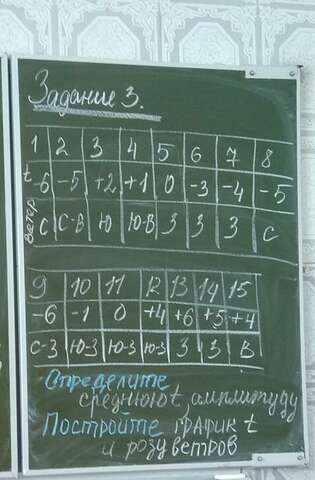 Задание 3.
1 2 3 4 5 6 7 8
t -6 -5 +2 +1 0 -3 -4 -5
ветер С С-В Ю Ю-В З З З С
9 10 11 12 13 14 15
-6 -1 0 +4 +6 +5 +4
С-З Ю-З Ю-З Ю-З З З В
Определите
среднюю t, амплитуду
Постройте график t
и розу ветров